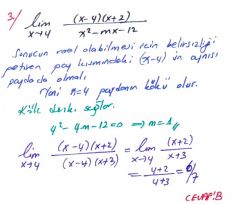 3) lim x→4 (x-4)(x+2) / x² - mx - 12
Sonucun reel olabilmesi için belirsizliği
getiren pay kısmındaki (x-4) ün aynısı
paydada olmalı.
Yani x=4 paydanın kökü olur.
Kök denk. sağlar.
4² - 4m - 12 = 0 ⇒ m = 1
lim x→4 (x-4)(x+2) / (x-4)(x+3) = lim x→4 (x+2) / x+3
= 4+2 / 4+3 = 6/7
CEVAP:B